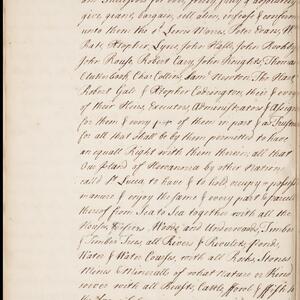 and Successors for ever, freely fully & absolutely
give, grant, bargain, sell alien, enfeoff & confirm
unto them the sd. James Morris, Peter Evans, Wm.
Hale Stephen Lyne, John Halls, John
John Rouse Robert Cary, John Knights, Thomas
Clutterbuck, Char. Collins, Saml. Newton, Tho. Hart
Robert Gale & Stephen Codrington, their & every
of their Heirs, Executors, Administrators & Assigns
for them & every part of them in part as Trustees
for all that Shall be by them permitted to have
an equall Right with them therein; all that
Our Island of by other Nations
call'd St. Lucea to have & to hold occupy possess
manure & enjoy the same & every part & parcell
thereof from Sea to Sea together with all the
Houses, Woods and Underwoods, Timber
& Timber Trees all Rivers & Rivulets, ponds,
Water & Water Courses, with all Rocks, Stones
Mines & Mineralls of what Nature or Kind
soever with all Forts, Castles,